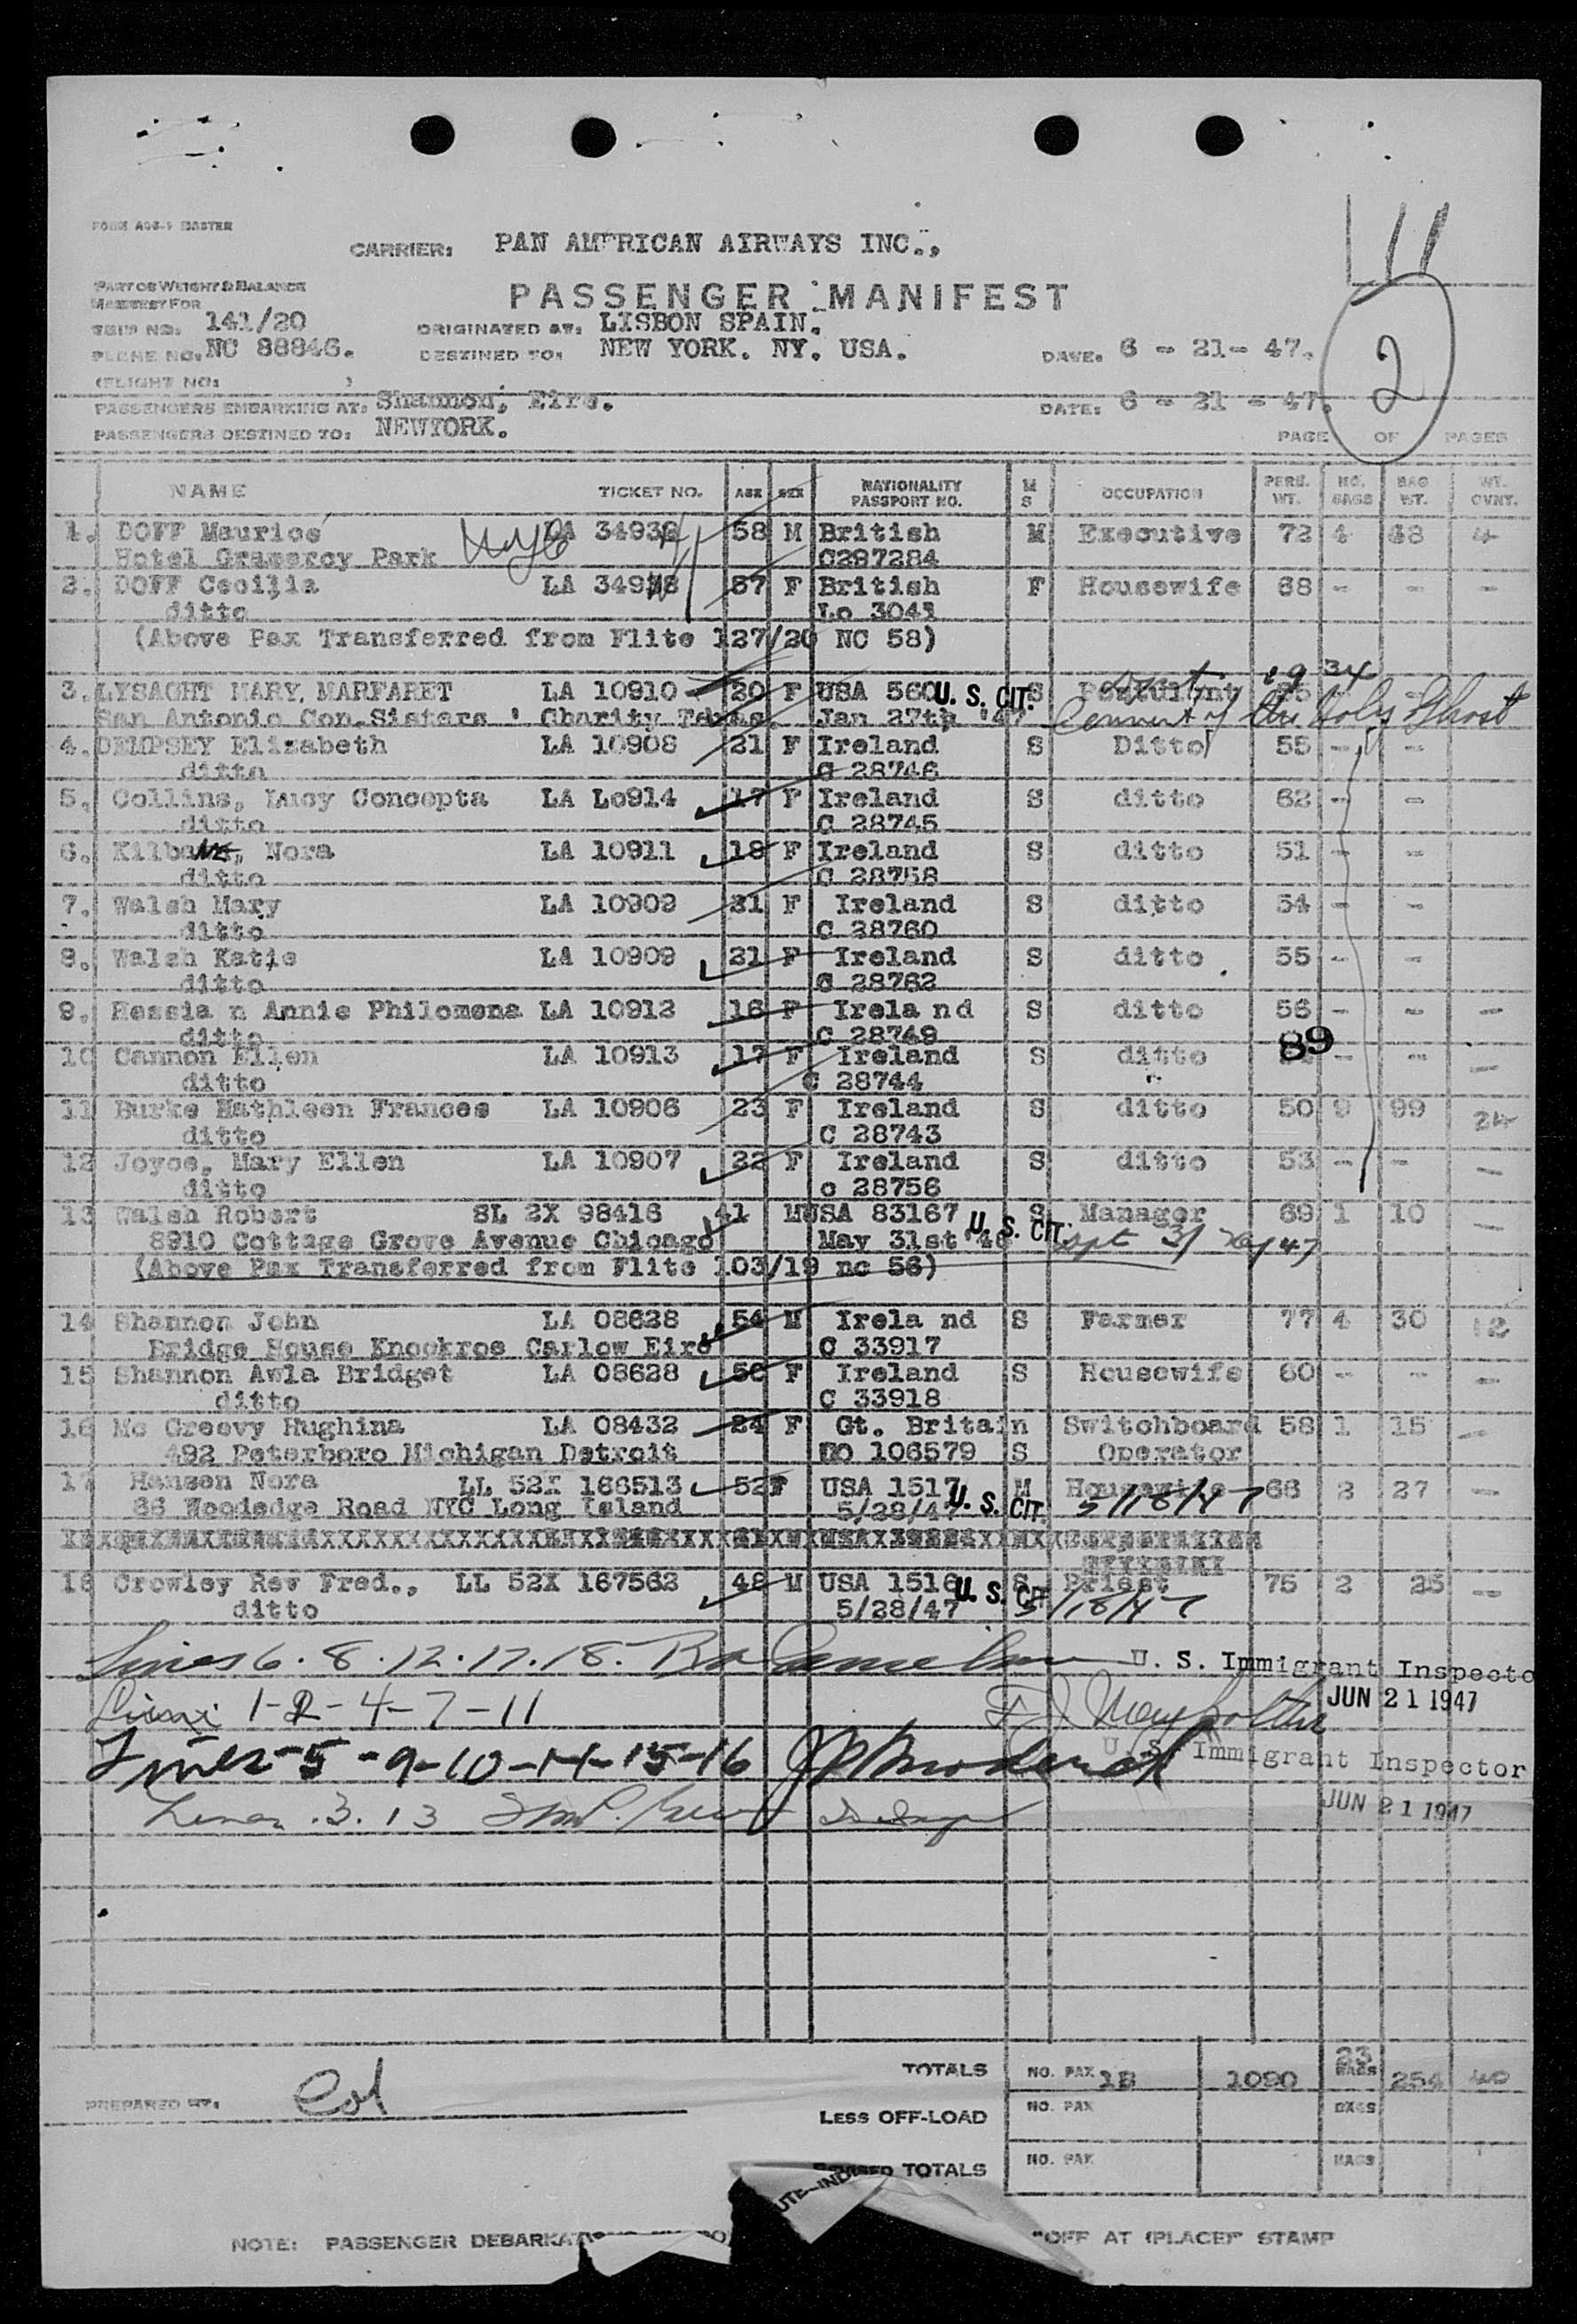 11
FORM AGS-1 MASTER
CARRIER: PAN AMERICAN AIRWAYS INC.,
PART OF WEIGHT & BALANCE
MANIFEST FOR
PASSENGER MANIFEST
TRIP NO. 141/20 ORIGINATED AT: LISBON SPAIN.
PLANE NO. NC 88846. DESTINED TO: NEW YORK. NY. USA. DATE. 6 - 21- 47.
2
(FLIGHT NO: )
PASSENGERS EMBARKING AT: Shannon, Eire. DATE: 6 - 21 - 47.
PASSENGERS DESTINED TO: NEWYORK. PAGE OF PAGES
NAME TICKET NO. AGE SEX NATIONALITY PASSPORT NO. M S OCCUPATION PERS. WT. NO. BAGS BAG WT. WT. OVNT.
1. DOFF Maurice LA 58 M British M Executive 72 4 48 4
Hotel Gramercy Park C297284
2. DOFF Cecilia LA 57 F British F Housewife 68 - - -
ditto Lo 3041
(Above Pax Transferred from Flite 127/20 NC 58)
1934
3. LYSAGHT MARY. MARFARET LA 10910 20 F USA 560 U. S. CIT. S
San Antonio Con.Sisters ' Charity Texas. Jan 27th '47 Convent of the Holy Ghost
4. DEMPSEY Elizabeth LA 10908 21 F Ireland S Ditto 55 - -
ditto C 28746
5. Collins, Lucy Concepta LA Lo914 17 F Ireland S ditto 62 - -
ditto C 28745
6. Kilbane, Nora LA 10911 18 F Ireland S ditto 51 - -
ditto C 28758
7. Walsh Mary LA 10909 21 F Ireland S ditto 54 - -
ditto C 28760
8. Walsh Katie LA 10909 21 F Ireland S ditto 55 - -
ditto C 28762
9. Hessia n Annie Philomena LA 10912 16 F Irela nd S ditto 56 - - -
ditto C 28749
10 Cannon Ellen LA 10913 17 F Ireland S ditto 89 - - -
ditto C 28744
11 Burke Kathleen Frances LA 10906 23 F Ireland S ditto 50 9 99 24
ditto C 28743
12 Joyce, Mary Ellen LA 10907 22 F Ireland S ditto 53 - - -
ditto c 28756
13 Walsh Robert SL 2X 98416 41 M USA 83167 U. S. CIT. S Manager 69 1 10 -
8910 Cottage Grove Avenue Chicago May 31st '46
(Above Pax Transferred from Flite 103/19 nc 56)
14 Shannon John LA 08628 54 M Irela nd S Farmer 77 4 30 12
Bridge House Knockros Carlow Eire C 33917
15 Shannon Awla Bridget LA 08628 50 F Ireland S Housewife 60 - - -
ditto C 33918
16 Mc Greevy Hughina LA 08432 24 F Gt. Britain Switchboard 58 1 15 -
492 Peterboro Michigan Detroit DO 106579 S Operator
17 Hansen Nora LL 52X 166513 52 F USA 1517 U. S. CIT. M Housewife 66 2 27 -
66 Woodedge Road NYC Long Island 5/28/47 5/18/47
18 Crowley Rev Fred., LL 52X 167562 48 M USA 1516 U. S. CIT S Priest 75 2 25 -
ditto 5/28/47 5/18/47
Lines 6. 8. 12. 17. 18. U. S. Immigrant Inspecto
JUN 21 1947
Lines 1-2-4-7-11
Lines-5-9-10-14-15-16 U. S. Immigrant Inspector
Lines. 3. 13 JUN 21 1947
TOTALS NO. PAX 18 1090 23 BAGS 254 40
PREPARED BY:
LESS OFF-LOAD NO. PAX BAGS
TOTALS NO. PAX BAGS
NOTE: PASSENGER "OFF AT (PLACE)" STAMP